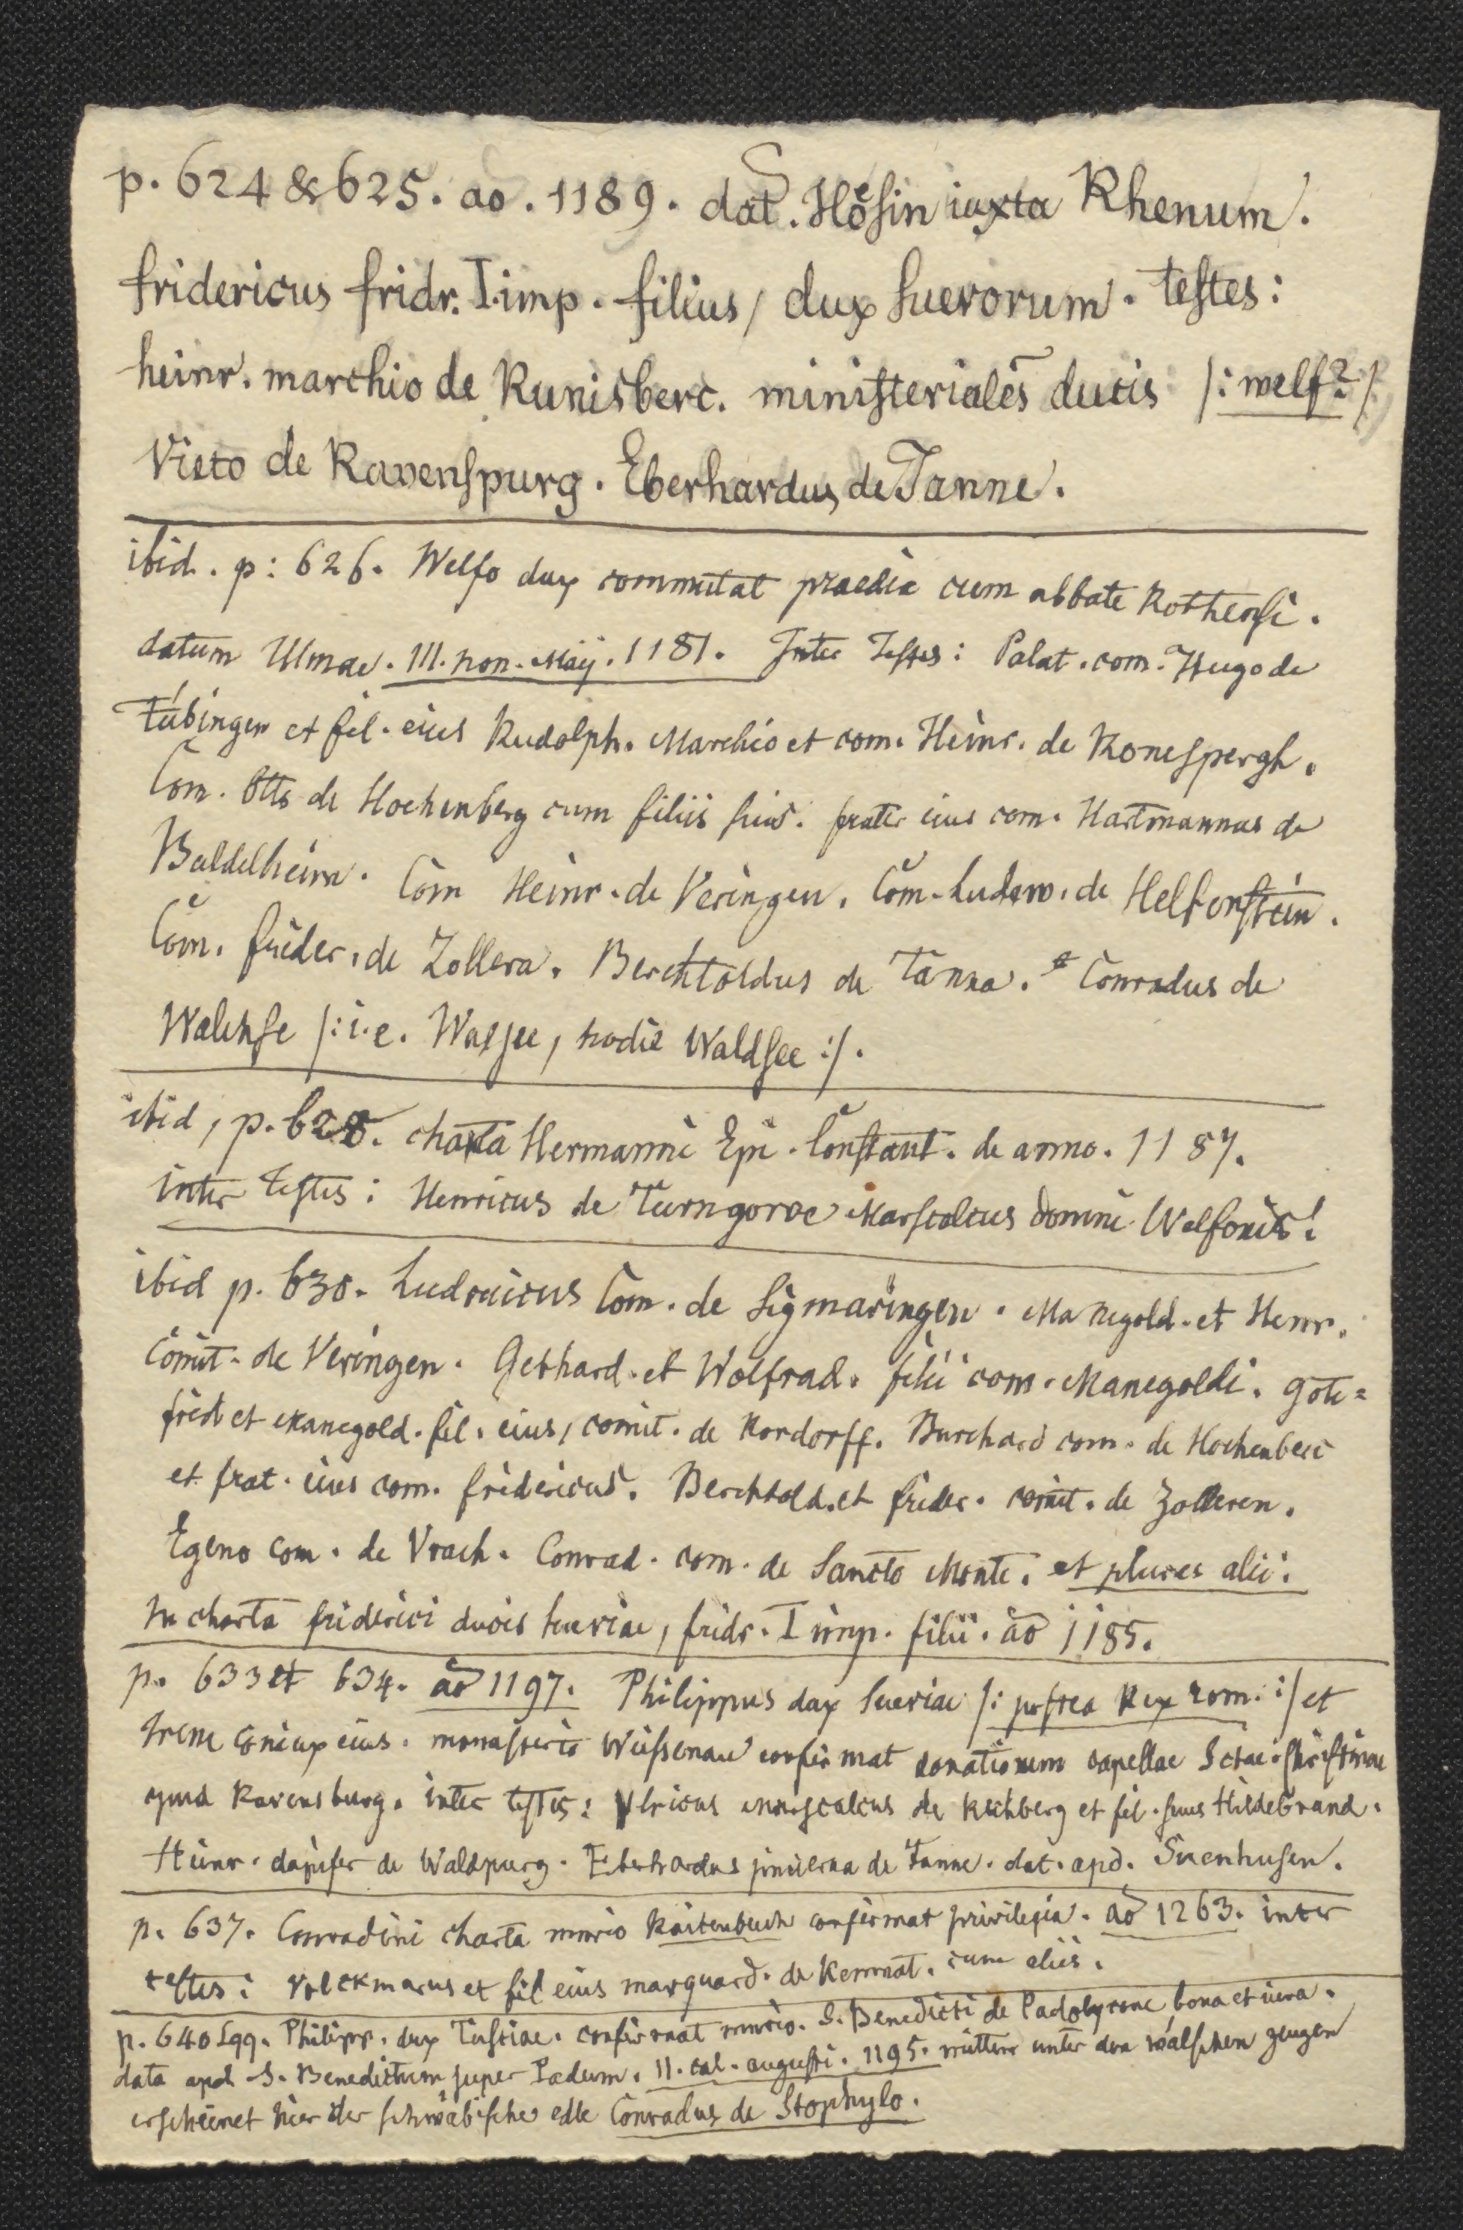 p. 624 & 625. ao. 1189. dat. Hoͤsin iuxta Rhenum.
fridericus fridr. I. imp. filius, dux suevorum. testes:
heinr. marchio de Runisberc. ministeriales ducis /: welf? :/
Vieto de Ravenspurg. Eberhardus de Tanne.
ibid. p: 626. Welfo dux commutat praedia cum abbate Rothensi.
datum Ulmae. III. non. Maÿ. 1181. Inter Testes: Palat. com. Hugo de
Tübingen et fil. eius Rudolph. Marchio et com. Heinr. de Ronespergh.
Com. Otto de Hochenberg cum filiis suis. frater eius com. Hartmannus de
Baldelheim. Com Heinr. de Veringen. Com. Ludew. de Helfenstein.
Com. frider. de Zollera. Berchtoldus de Tanna. Conradus de
Walchse /: i.e. Walsee, hodie Waldsee :/.
ibid, p. 628. charta Hermanni Epi. Constant. de anno. 1187.
inter testes: Henricus de Turngowe Marscalcus domini Welfonis!
ibid p. 630. Ludovicus Com. de Sigmaringen. Manegold. et Henr.
Comit. de Veringen. Gebhard. et Wolfrad. filii com. Manegoldi. Gote=
frid et Manegold. fil. eius, comit. de Rordorff. Burchard com. de Hochenberc
et frat. eius com. fridericus. Berchtold. et frider. comit. de Zolleren.
Egeno com. de Vrach. Conrad. com. de Sancto Monte. et plures alii.
In charta friderici ducis sueviae, fridr. I imp. filii. ao 1185.
p. 633 et 634. ao 1197. Philippus dux Sueviae /: postea Rex rom. :/ et
Irene coniux eius. monasterio Weissenau confirmat donationem capellae Sctae. Christinae
apud Ravensburg. inter testes: Vlricus marscalcus de Rechberg et fil. suus Hildebrand.
Heinr. dapifer de Waldpurg. Eberhardus pincerna de Tanne. dat. apd. Suenhusen.
p. 637. Conradini charta mnrio Raitenbuch confirmat privilegia. ao 1263. inter
testes: Volckmarus et fil eius marquard. de Kemnat. cum aliis.
p. 640 sqq. Philipp. dux Tusciae. confirmat mnrio. S. Benedicti de Padolyrone bona et iura.
data apd S. Benedictum super Padum. 11. cal. augusti. 1195. mitten unter den wälschen zeugen
erscheinet hier der schwäbische edle Conradus de Stophylo.